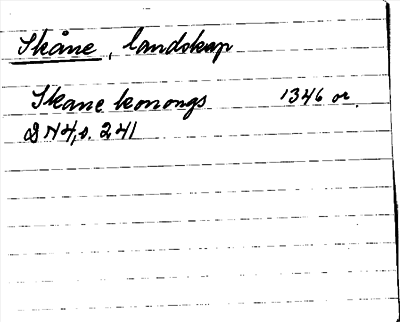 Skåne, landskap
Skane konongs 1346 or.
DN4, s. 241